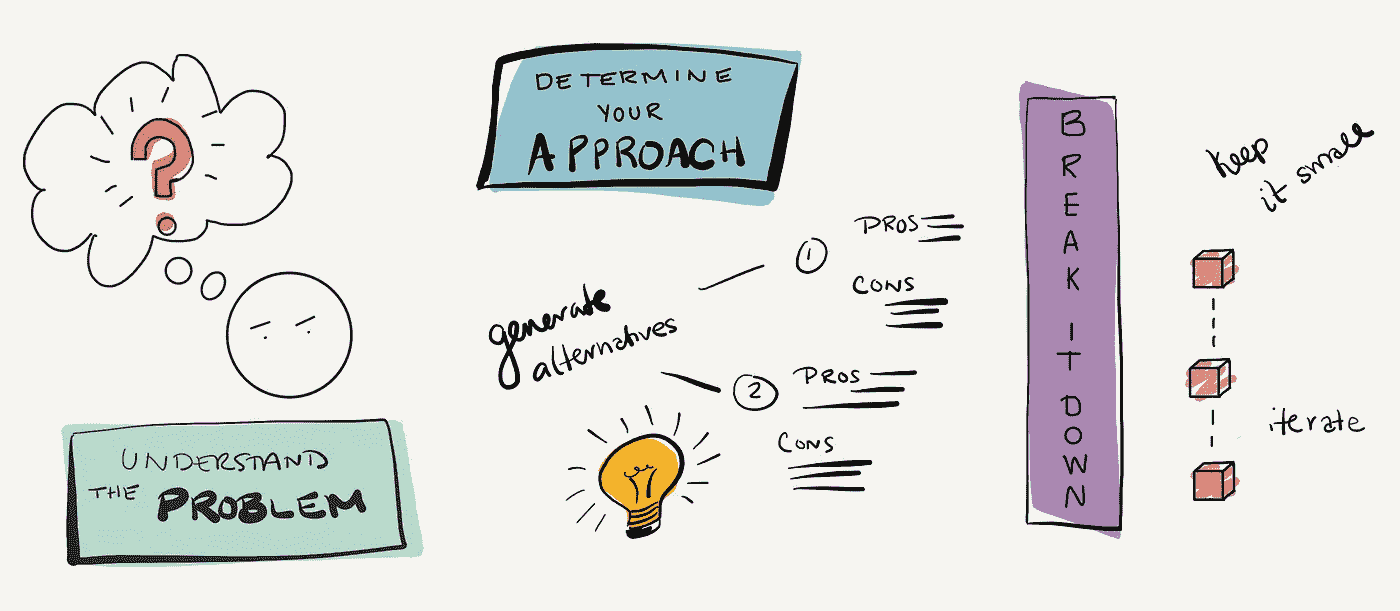 UNDERSTAND
THE PROBLEM
DETERMINE
YOUR
APPROACH
generate
alternatives
1
PROS
CONS
2
PROS
CONS
BREAK IT DOWN
keep
it small
iterate